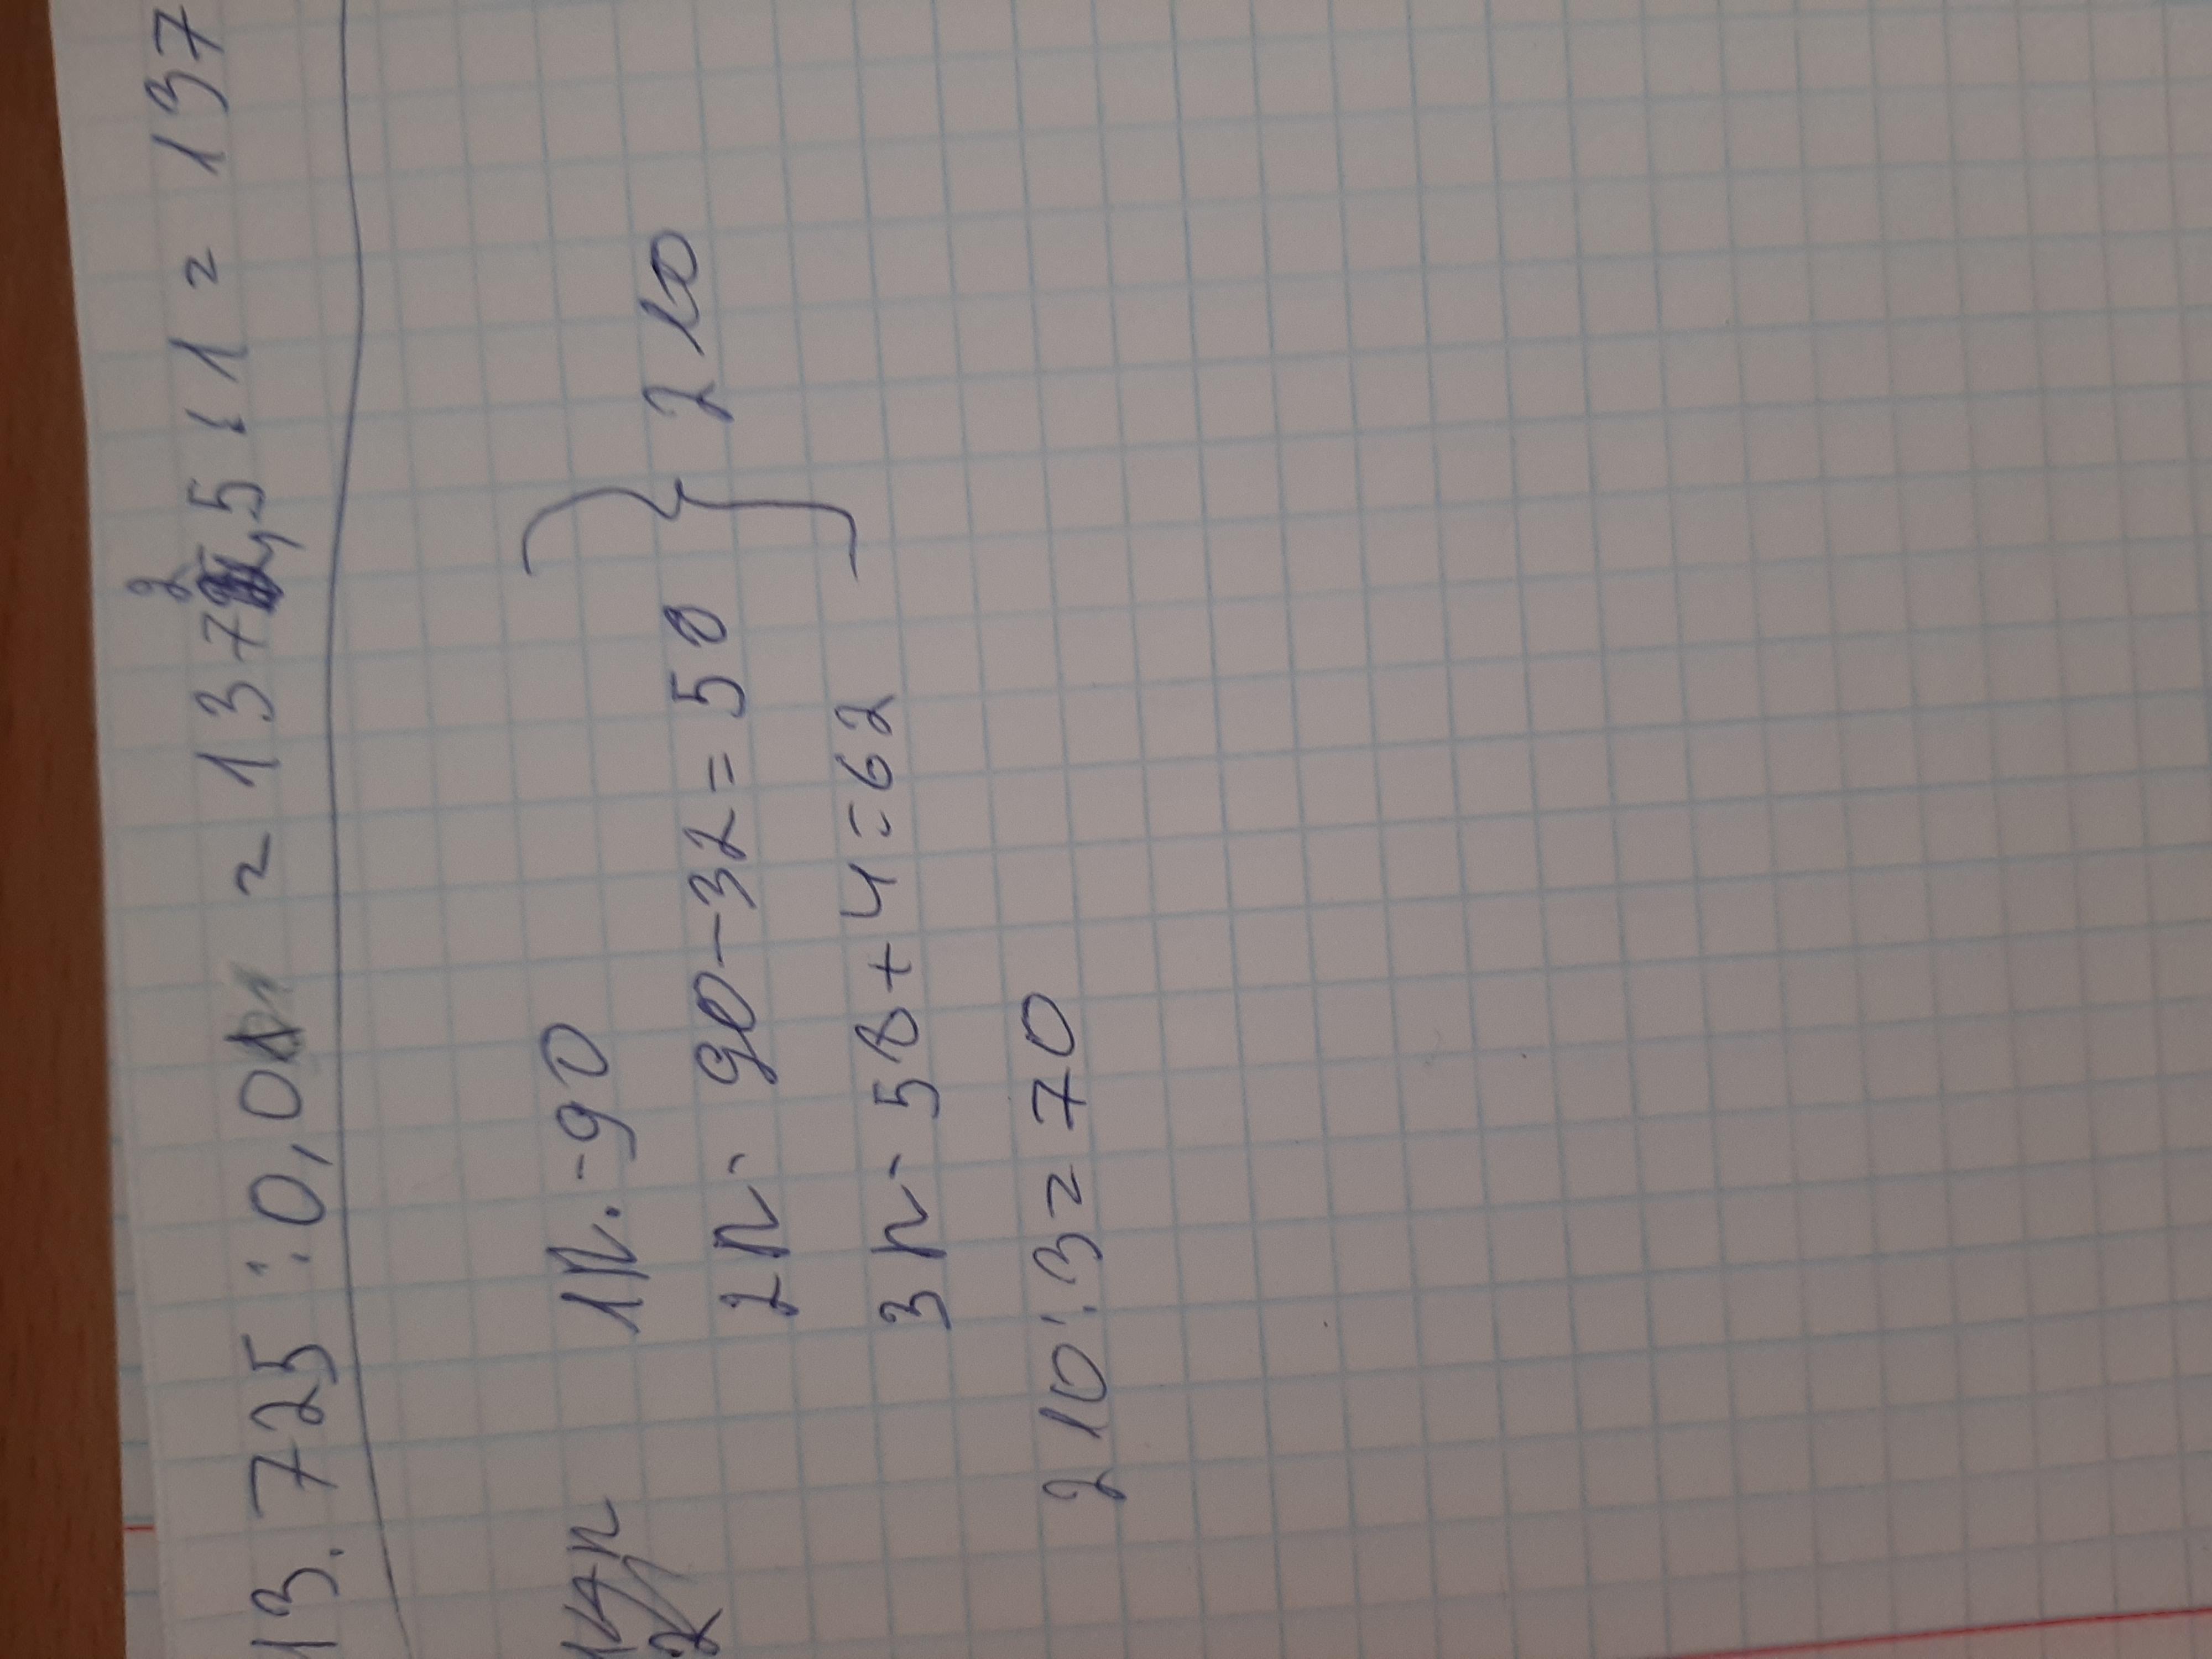 13.725 : 0,01 = 1372,5 : 1 = 137
1п. - 90
2п - 90 - 32 = 58
} 210
3п - 58 + 4 = 62
210 : 3 = 70